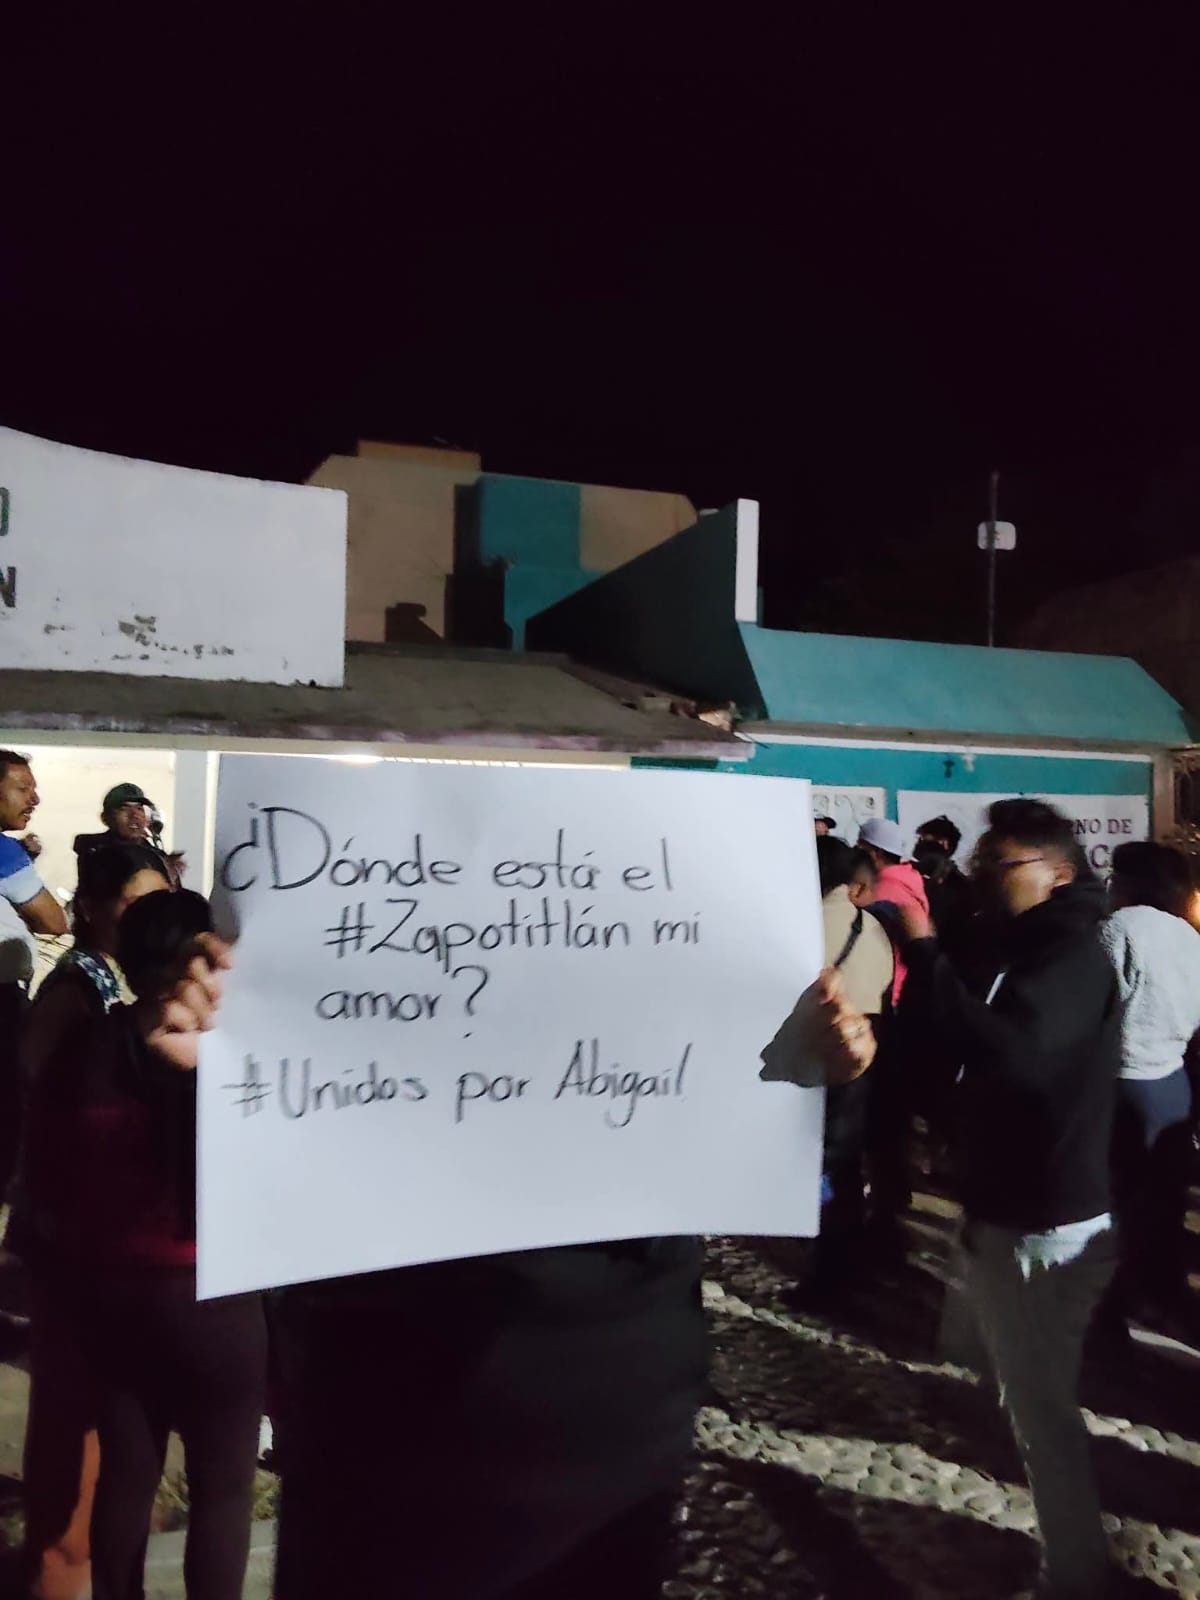 ¿Dónde está el
#Zapotitlán mi
amor?
#Unidos por Abigail
RNO DE